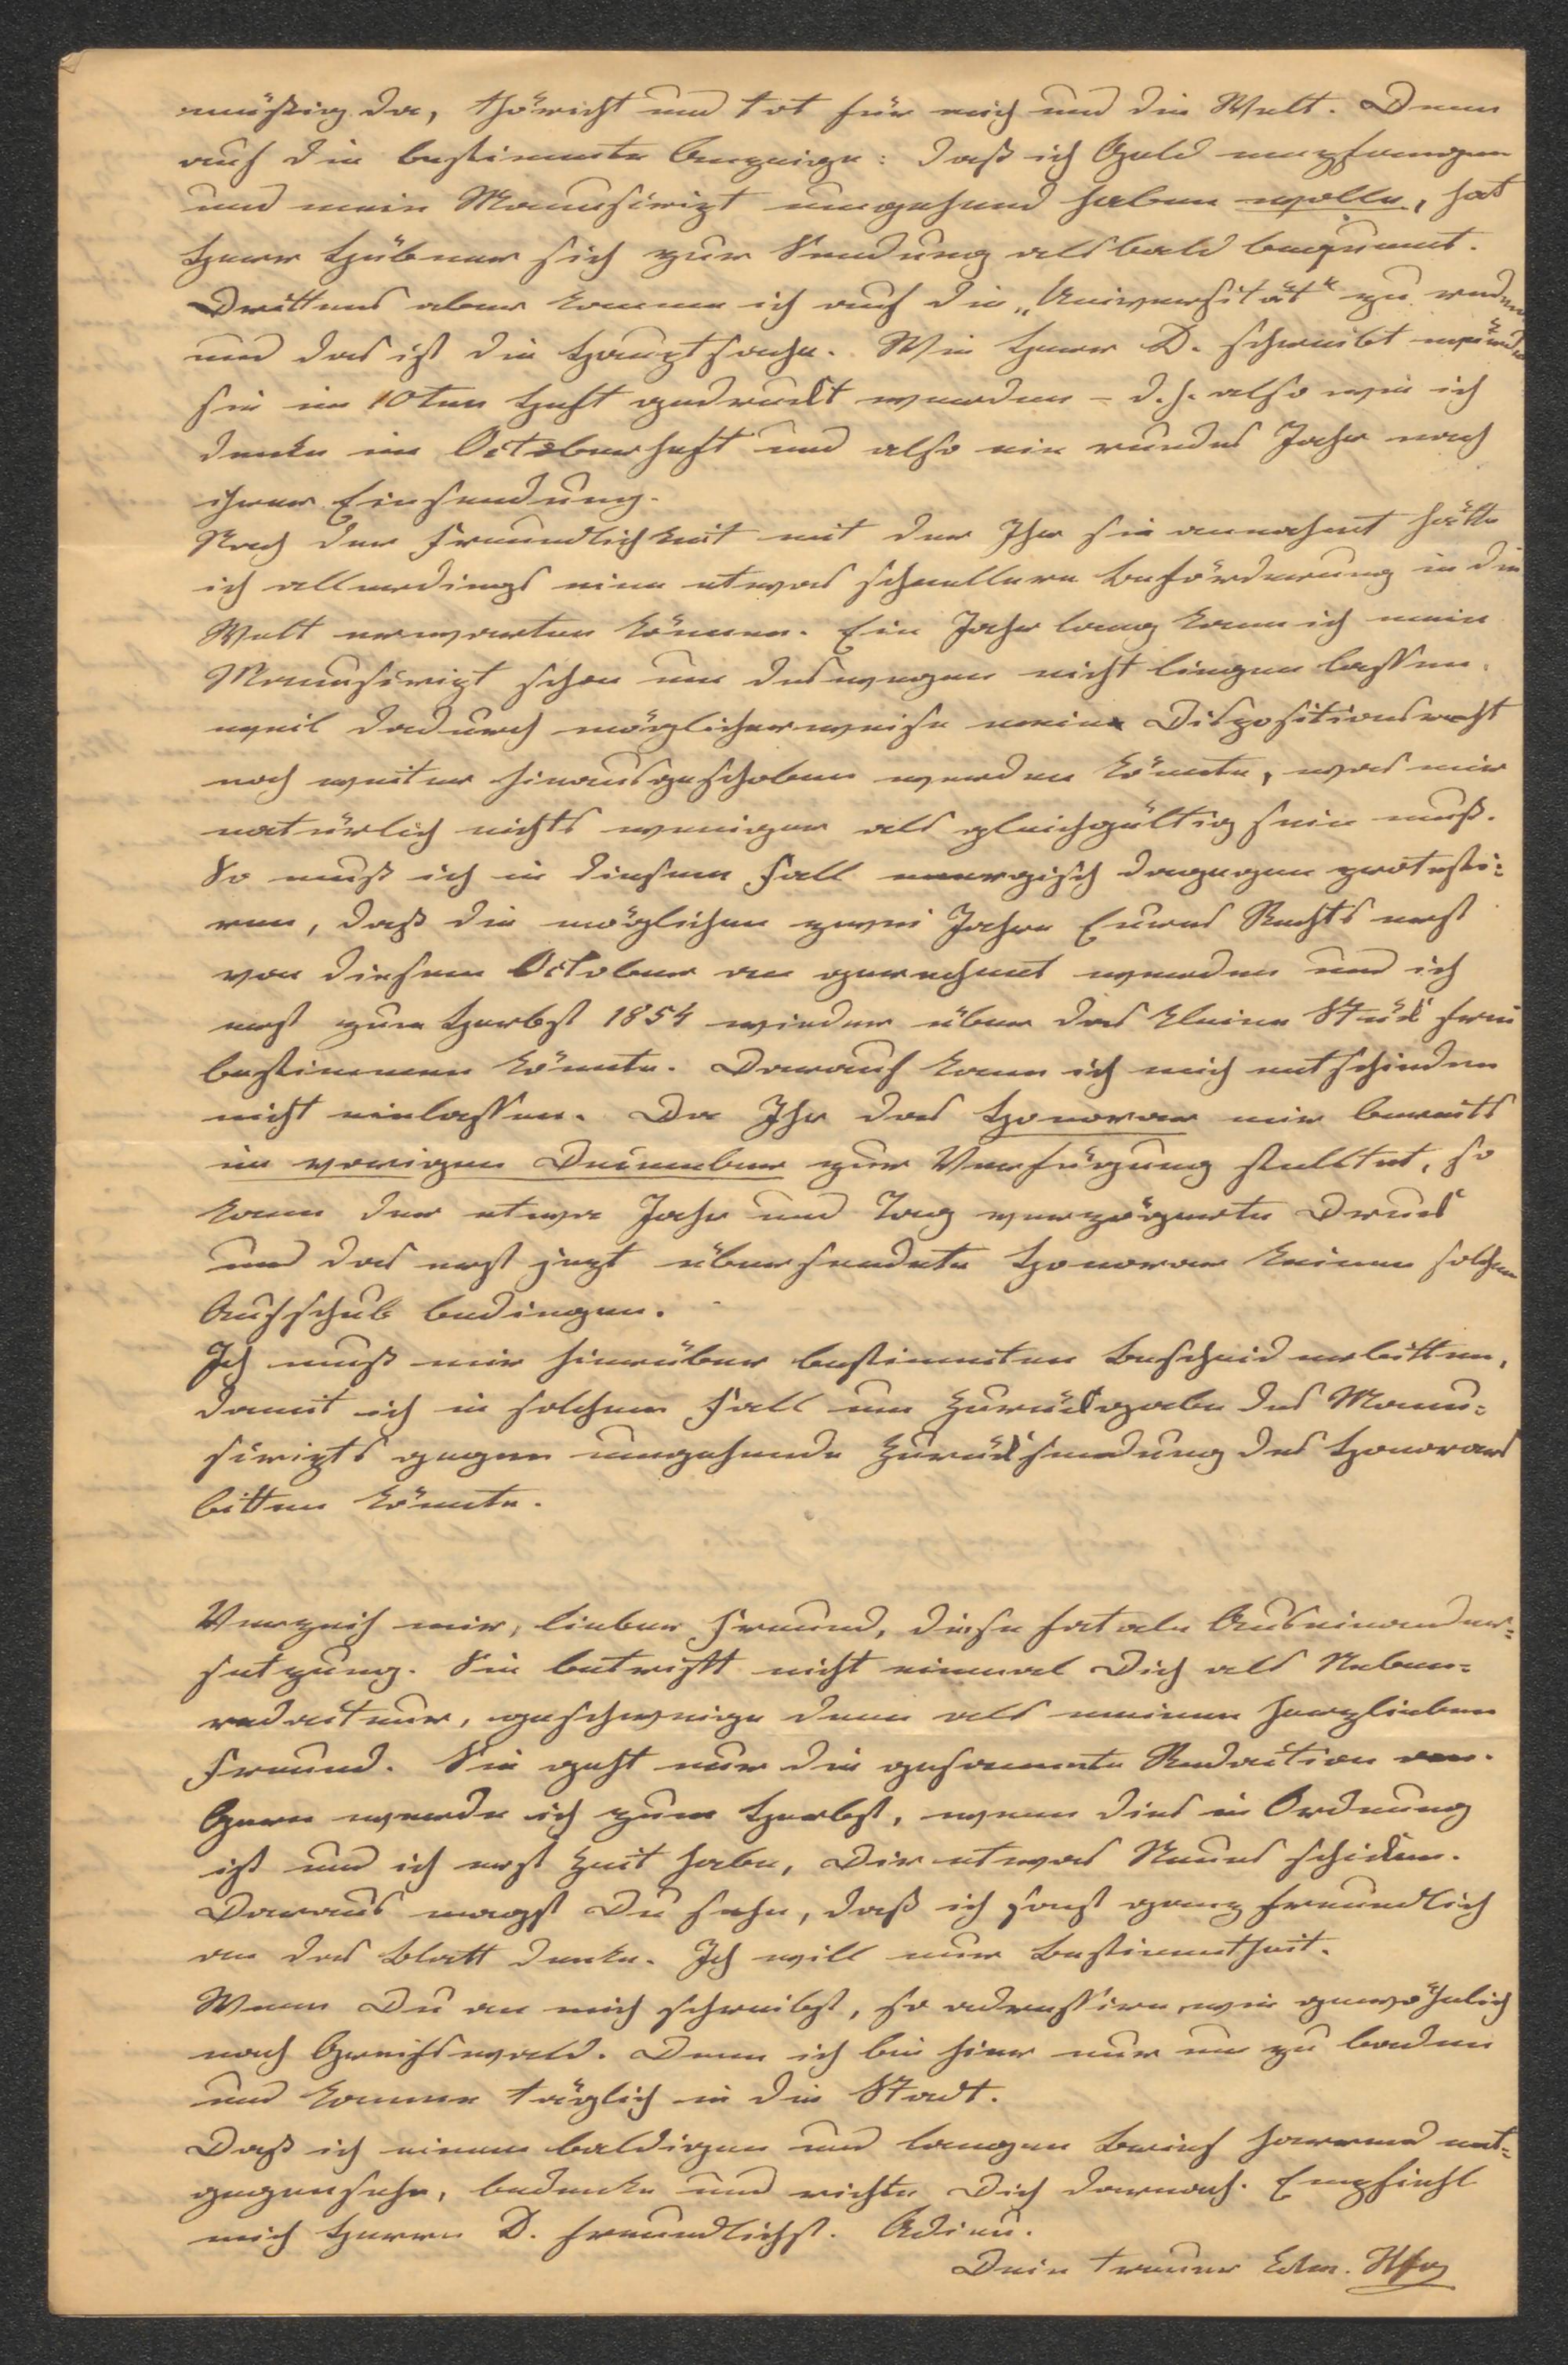 müßig da, thöricht und tot für mich und die Welt. Denn
auf die bestimmte Anzeige: daß ich Geld empfangen
und mein Manuscript umgehend haben wolle, hat
Herr Hübner sich zur Sendung alsbald bequemt.
Drittens aber komme ich auf die „Universität" zu reden
und das ist die Hauptsache. Wie Herr D. schreibt würde
sie im 10ten Heft gedruckt werden – d.h. also wie ich
denke im Octoberheft und also ein rundes Jahr nach
ihrer Einsendung.
Nach der Freundlichkeit mit der Ihr sie annahmt hätte
ich allerdings eine etwas schnellere Beförderung in die
Welt erwarten können. Ein Jahr lang kann ich mein
Manuscript schon um deswegen nicht liegen lassen,
weil dadurch möglicherweise mein Dispositionsrecht
noch weiter hinausgeschoben werden könnte, was mir
natürlich nichts weniger als gleichgültig sein muß.
So muß ich in diesem Fall energisch dagegen protesti-
ren, daß die möglichen zwei Jahre Eures Rechts erst
von diesem October an gerechnet werden und ich
erst zum Herbst 1854 wieder über das kleine Stück frei
bestimmen könnte. Darauf kann ich mich entschieden
nicht einlassen. Da Ihr das Honorar mir bereits
im vorigen December zur Verfügung stelltet, so
kann der etwa Jahr und Tag verzögerte Druck
und das erst jezt übersendete Honorar keinen solchen
Aufschub bedingen.
Ich muß mir hierüber bestimmten Bescheid erbitten,
damit ich in solchem Fall um Zurückgabe des Manu-
scripts gegen umgehende Zurücksendung des Honorars
bitten könnte.
Verzeih mir, lieber Freund, diese fatale Auseinander-
setzung. Sie betrifft nicht einmal Dich als Neben-
redacteur, geschweige denn als meinen herzlieben
Freund. Sie geht nur die gesammte Redaction an.
Gern werde ich zum Herbst, wenn dies in Ordnung
ist und ich erst Zeit habe, Dir etwas Neues schicken.
Daraus magst Du sehn, daß ich sonst ganz freundlich
an das Blatt denke. Ich will nur Bestimmtheit.
Wenn Du an mich schreibst, so adressire wie gewöhnlich
nach Greifswald. Denn ich bin hier nur um zu baden
und komme täglich in die Stadt.
Daß ich einem baldigen und langen Brief harrend ent-
gegensehe, bedenke und richte Dich darnach. Empfiehl
mich Herrn D. freundlichst. Adieu.
Dein treuer Edm. Hfr